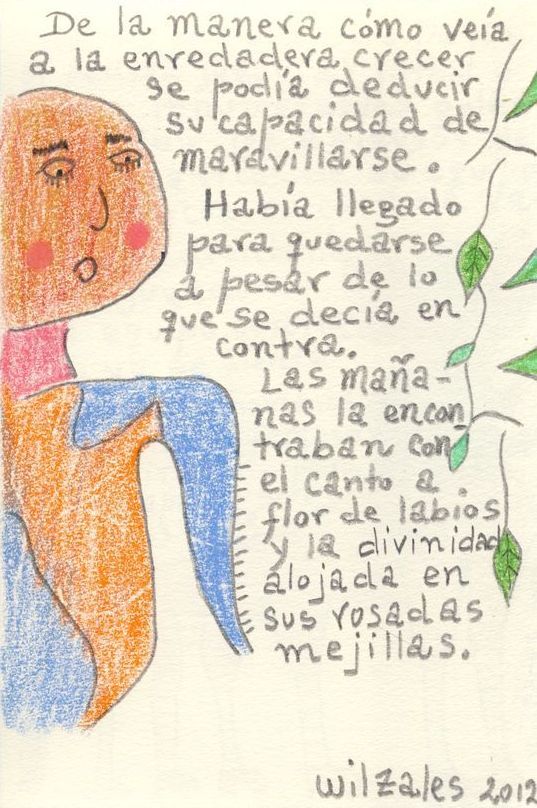 De la manera cómo veía
a la enredadera crecer
se podía deducir
su capacidad de
maravillarse.
Había llegado
para quedarse
a pesar de lo
que se decía en
contra.
Las maña-
nas la encon_
traban con
el canto a
flor de labios
y la divinidad
alojada en
sus rosadas
mejillas.
wilzales 2012